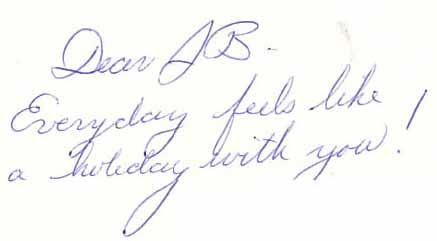 Dear JB.
Everyday feels like
a holiday with you!